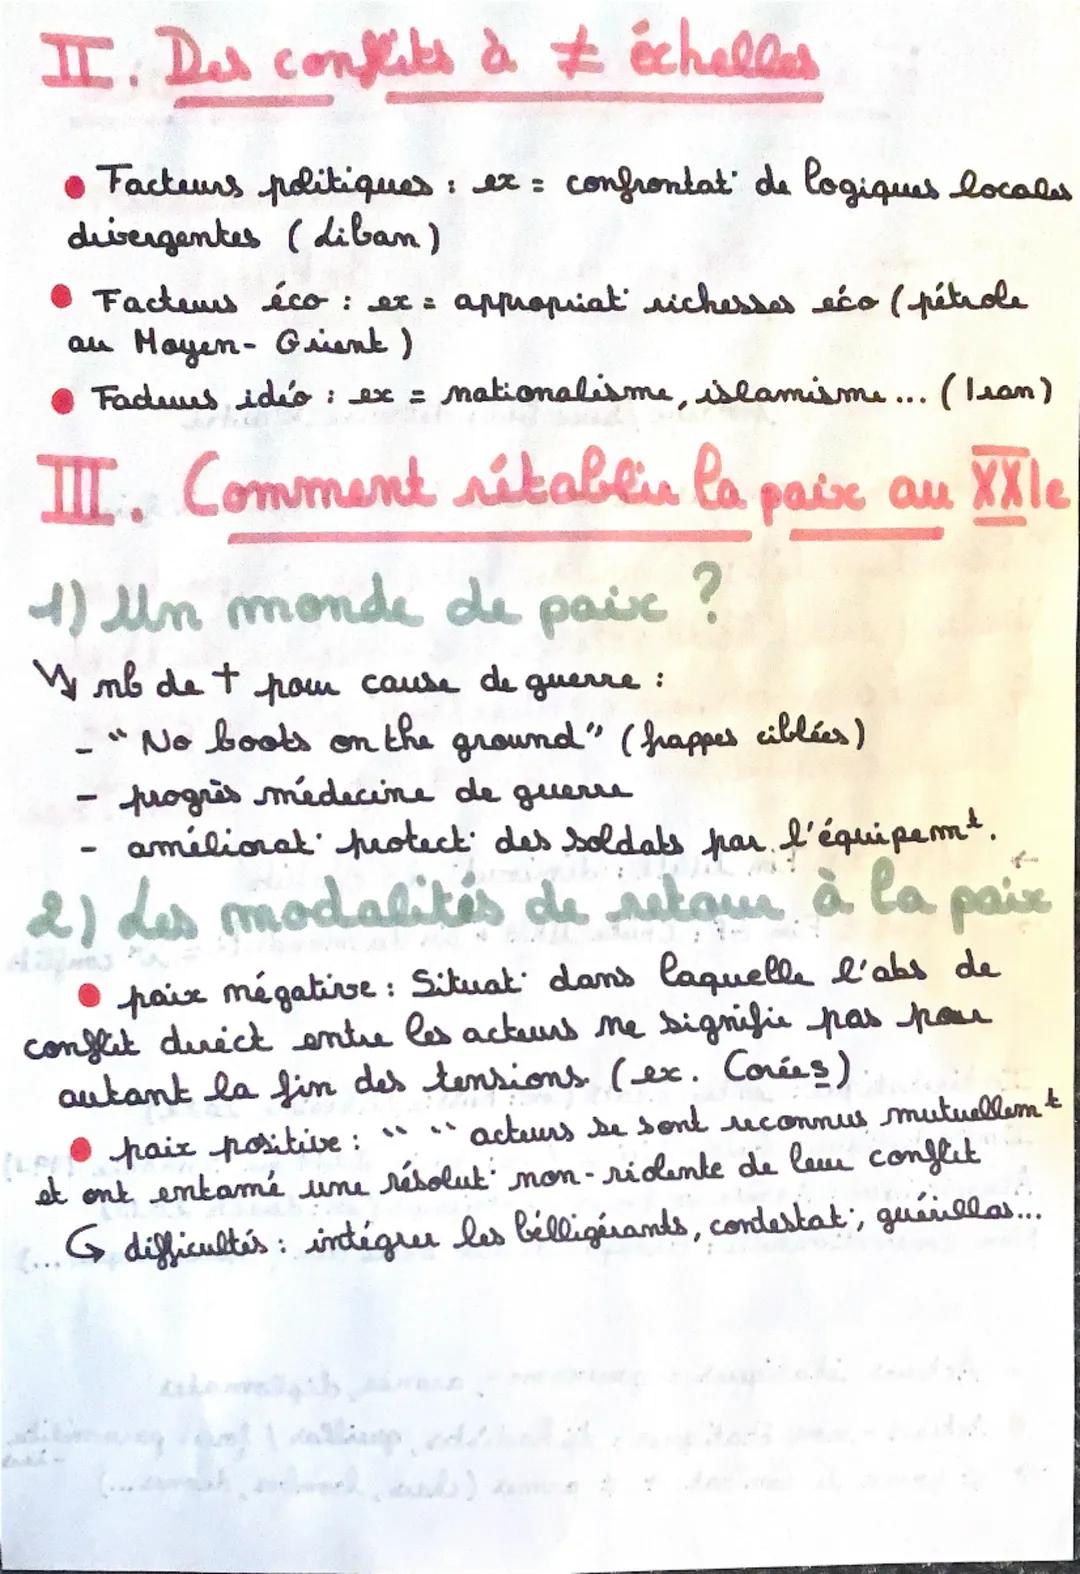 II. Des conflits à ≠ échelles
• Facteurs politiques : ex = confrontat° de logiques locales
divergentes (Liban)
• Facteurs éco : ex = appropriat° richesses éco (pétrole
au Moyen-Orient)
• Facteurs idéo : ex = nationalisme, islamisme... (Iran)
III. Comment rétablir la paix au XXIe
1) Un monde de paix ?
↘ nb de † pour cause de guerre :
- "No boots on the ground" (frappes ciblées)
- progrès médecine de guerre
- améliorat° protect° des soldats par l'équipemt.
2) Les modalités de retour à la paix
• paix négative : Situat° dans laquelle l'abs de
conflit direct entre les acteurs ne signifie pas pour
autant la fin des tensions. (ex. Corées)
• paix positive : " " acteurs se sont reconnus mutuellemt
et ont entamé une résolut° non-violente de leur conflit
↳ difficultés : intégrer les bélligérants, contestat°, guérillas...